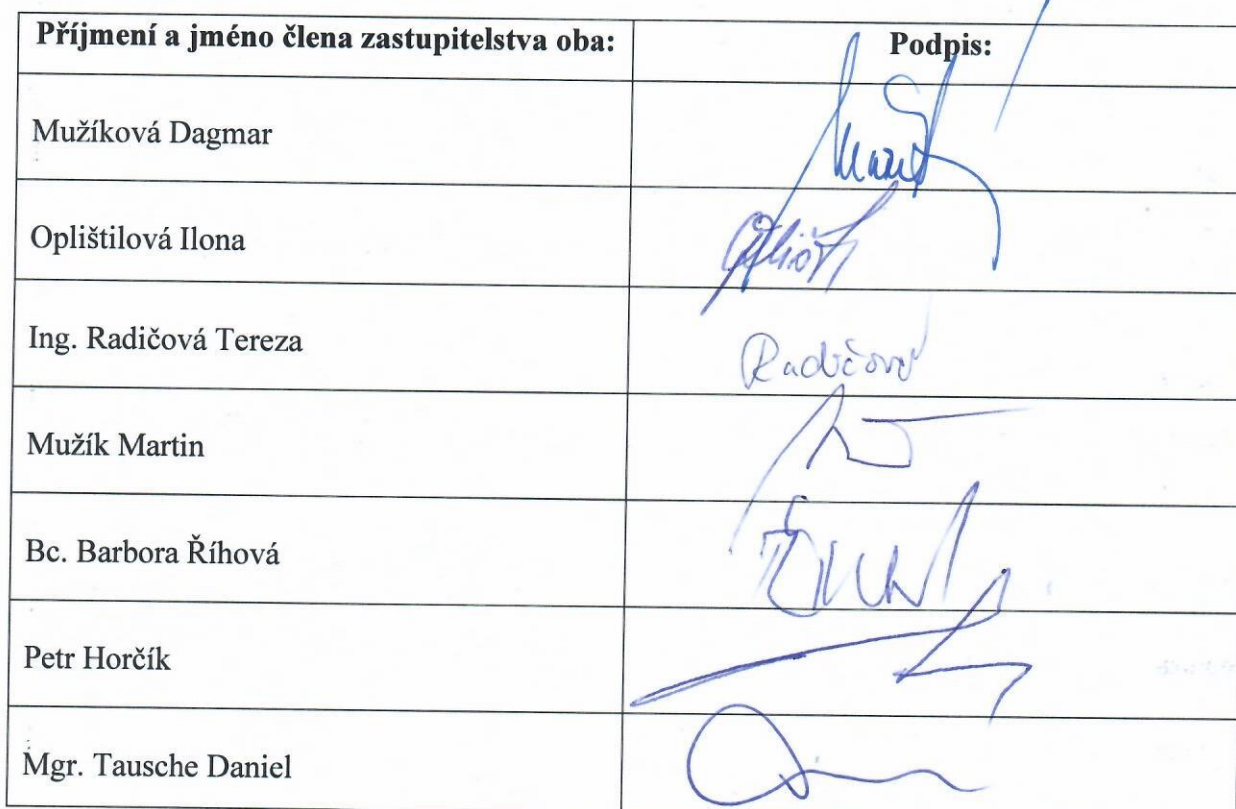 Příjmení a jméno člena zastupitelstva oba: Podpis:
Mužíková Dagmar
Oplištilová Ilona
Ing. Radičová Tereza Radičová
Mužík Martin
Bc. Barbora Říhová
Petr Horčík
Mgr. Tausche Daniel